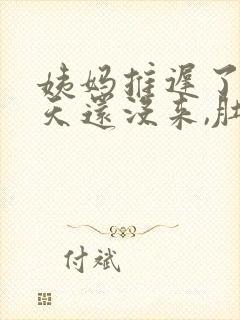 姨妈推迟了
天还没来,肚
付斌